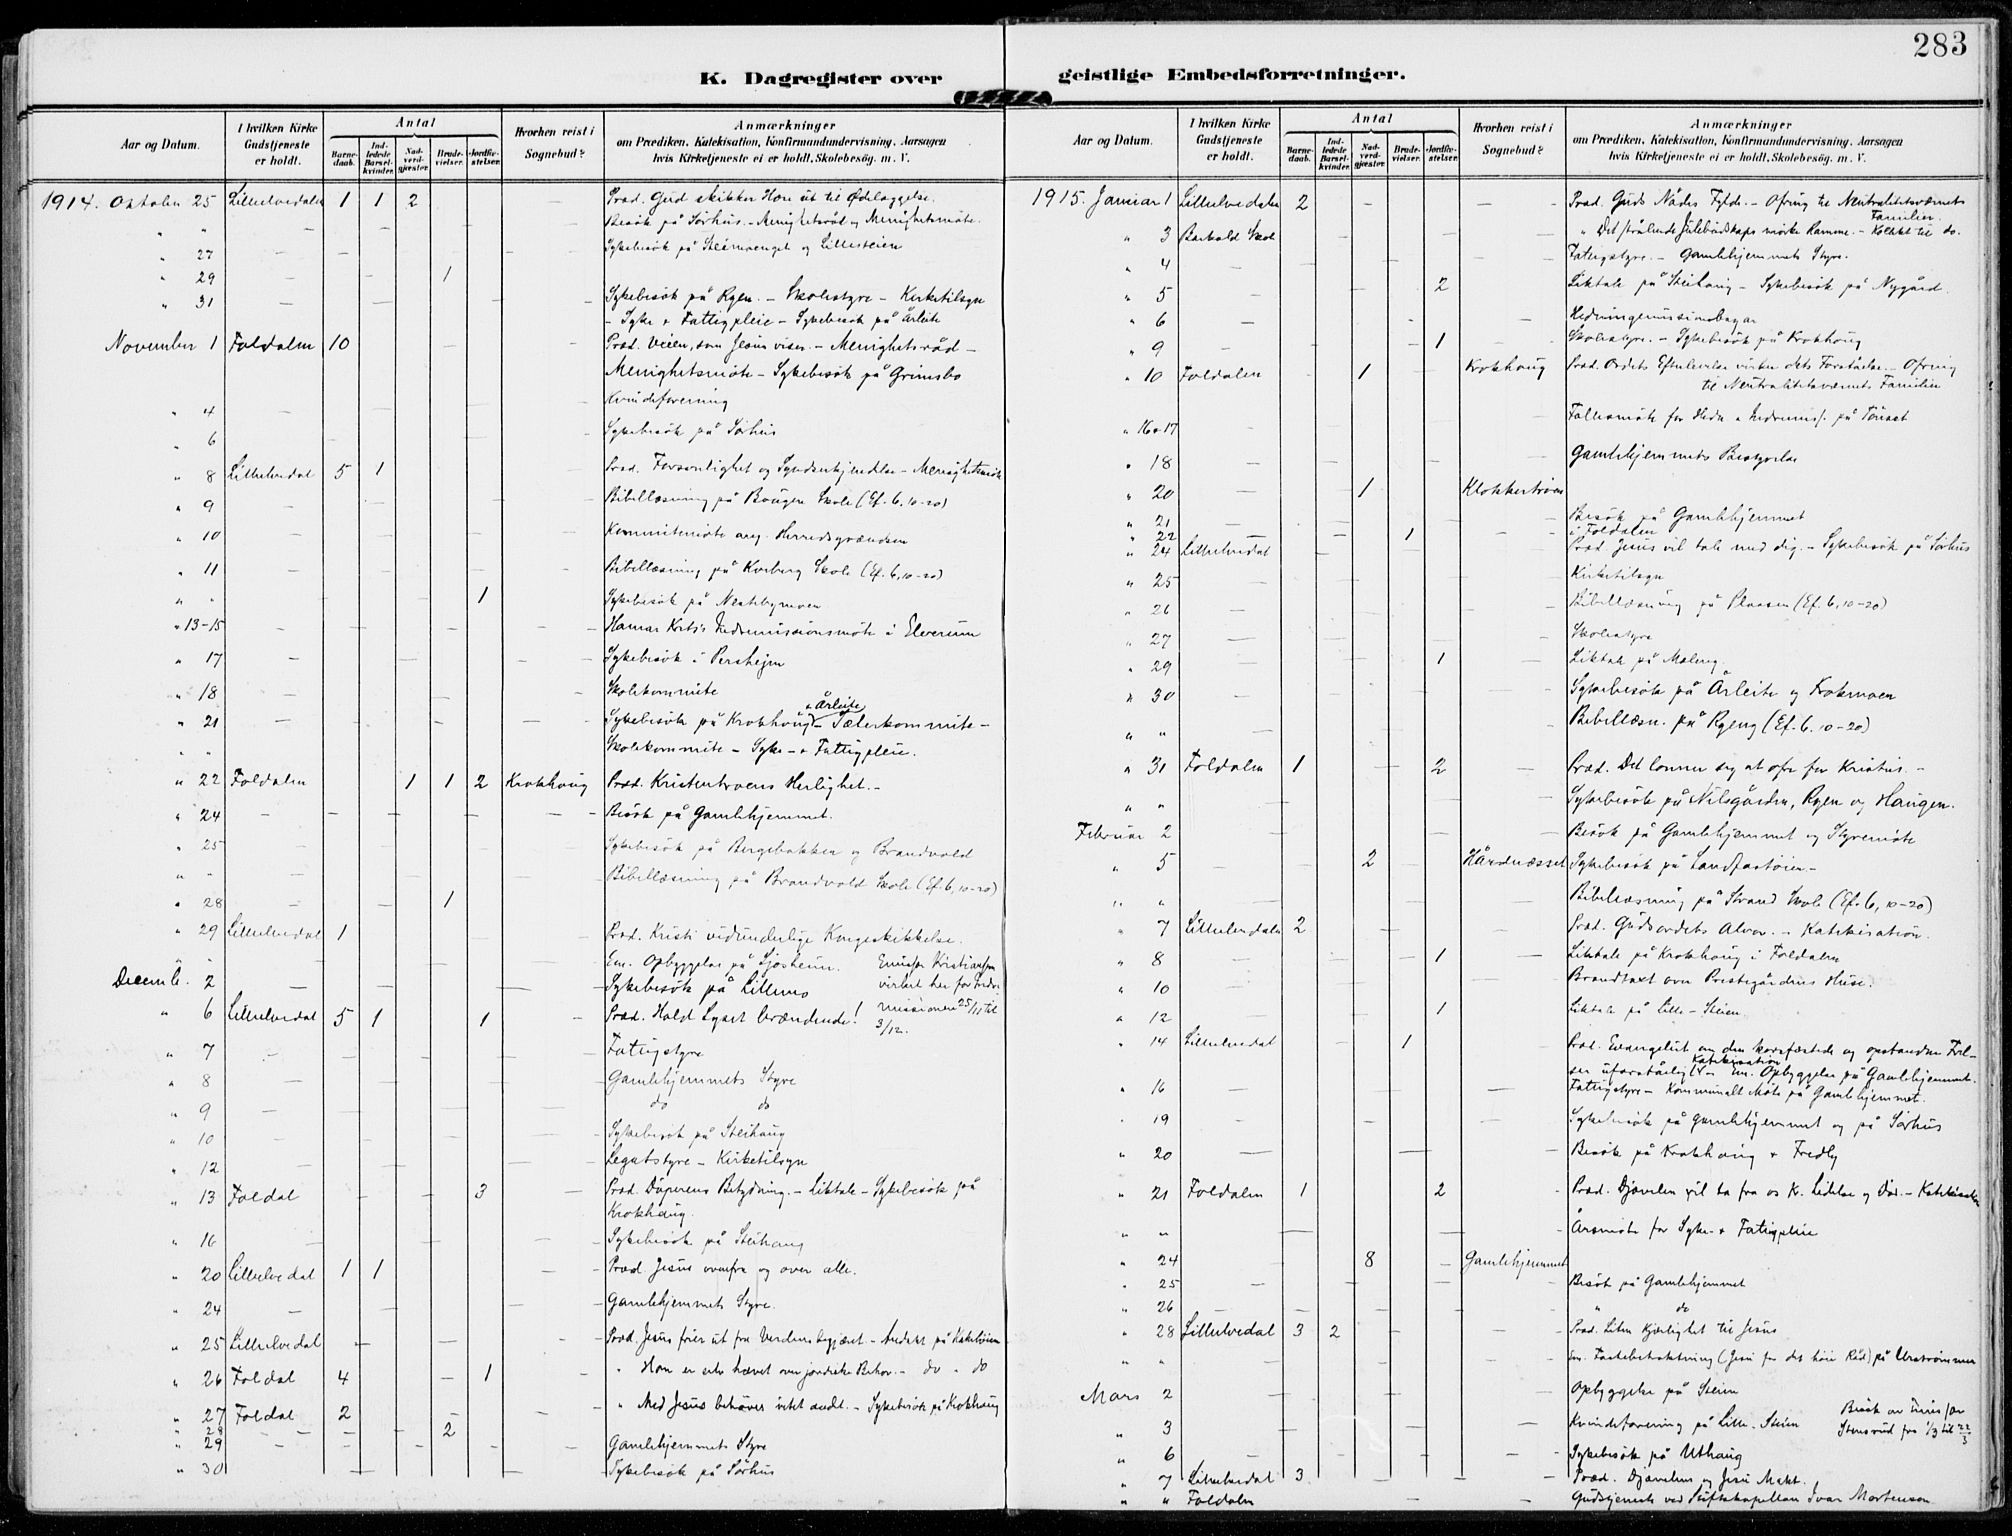 283
K. Dagregister over geistlige Embedsforretninger.
Aar og Datum.
I hvilken Kirke Gudstjeneste er holdt.
Antal
Barnedaab.
Indledede Barselkvinder.
Nadverdgjester.
Brudevielser.
Jordfæstelser.
Hvorhen reist i Sognebud?
Anmærkninger
om Prædiken, Katekisation, Konfirmandundervisning, Aarsagen
hvis Kirketjeneste ei er holdt, Skolebesög. m. V.
1914. Oktober 25 Lilleelvedalen 1 1 2 — Præd. Gud skikker Hon ut til Ødelæggelse.
" " — Besök på Sørhus. – Menighetsråd og Menighetsmöte.
" 27 — Sykebesök på Steimoenget og Lillesteien
" 29 — 1
" 31 — Sykebesök på Ryen. – Skolestyre – Kirketilsyn
– Syke & Fattigpleie – Sykebesök på Årleite
November 1 Foldalen 10 Præd. Veien, som Jesus viser. – Menighetsråd –
Menighetsmöte – Sykebesök på Grimsbo
" 4 — Kvindeforening
" 6 — Sykebesök på Sørhus
" 8 Lilleelvedal 5 1 Præd. Forsonlighet og Syndserkjendelse – Menighetsmöte
" 9 — Bibellæsning på Bangen Skole (Ef. 6, 10-20)
" 10 — Kommitemöte ang. Herredsgrændsen
" 11 — Bibellæsning på Kveberg Skole (Ef. 6, 10-20)
" " — 1 Sykebesök på Nestebymoen
" 13-15 — Hamar Krets's Indremissionsmöte i Elverum
" 17 — Sykebesök i Persheim
" 18 — Skolekommite
" 21 — Sykebesök på Krokhaug & Årleite – Sæterkommite –
" " Skolekommite – Syke- & Fattigpleie.
" 22 Foldalen 1 1 2 Krokhaug Præd. Kristentroens Herlighet. –
" 24 — Besök på Gamlehjemmet.
" 25 — Sykebesök på Bergebakken og Brandvold
" " — Bibellæsning på Brandvold Skole (Ef. 6, 10-20)
" 28 — 1
" 29 Lilleelvedal 1 Præd. Kristi vidunderlige Kongeskikkelse.
" " Em. Opbyggelse på Sjøsheim. Emissær Kristiansen
Decemb. 2 — Sykebesök på Lillemo virket her for Indre-
" 6 Lilleelvedal 5 1 1 Præd. Hold Lyset brændende! missionen 25/11 til
3/12.
" 7 — Fattigstyre
" 8 — Gamlehjemmets Styre
" 9 — do do
" 10 — Sykebesök på Steihaug
" 12 — Legatstyre – Kirketilsyn
" 13 Foldal 3 Præd. Döperens Betydning. – Liktale – Sykebesök på
Krokhaug.
" 16 — Sykebesök på Steihaug
" 20 Lilleelvedal 1 1 Præd. Jesus ovenfra og over alle.
" 24 — Gamlehjemmets Styre.
" 25 Lilleelvedal — Præd. Jesus frier ut fra Verdensbegjæret – Andakt på Kakeloien
" 26 Foldal 4 1 " Hon er selv hævet over jordiske Behov. – do " do
" 27 Foldal 2 " Med Jesus behöves intet andet. – Sykebesök på Krokhaug
" 28 — 2
" 29 — Gamlehjemmets Styre
" 30 — Sykebesök på Sørhus
Aar og Datum.
I hvilken Kirke Gudstjeneste er holdt.
Antal
Barnedaab.
Indledede Barselkvinder.
Nadverdgjester.
Brudevielser.
Jordfæstelser.
Hvorhen reist i Sognebud?
Anmærkninger
om Prædiken, Katekisation, Konfirmandundervisning, Aarsagen
hvis Kirketjeneste ei er holdt, Skolebesög. m. V.
1915. Januar 1 Lilleelvedalen 2 — Præd. Guds Nådes Fylde. – Ofring til Neutralitetsværnets
Familier.
" 3 Barkald Skole " Det strålende Julebudskaps mörke Ramme. – Kollekt til do.
" 4 — Fattigstyre. – Gamlehjemmets Styre.
" 5 — 2 Liktale på Steihaug – Sykebesök på Nygård.
" 6 — Hedningemissionsbazar
" 9 — 1 Skolestyre. – Sykebesök på Krokhaug
" 10 Foldalen 1 Krokhaug Præd. Ordets Efterlevelse virker dets Forståelse. – Ofring
til Neutralitetsværnets Familier
" 16 & 17 Fællesmöte for Hedn. & Indremis. på Tönset
" 18 — Gamlehjemmets Bestyrelse
" 20 — 1 Klokkertröen
" 21 — Besök på Gamlehjemmet
" 22 — 1 i Foldalen
" 24 Lilleelvedal Præd. Jesus vil tale med dig. – Sykebesök på Sörhus
" 25 — Kirketilsyn
" 26 — Bibellæsning på Plassen (Ef. 6, 10-20)
" 27 — Skolestyre
" 29 — 1 Liktale på Moleng.
" 30 — Sykebesök på Årleite og Krokmoen
" " — Bibellæsn. på Ryeng (Ef. 6. 10-20)
" 31 Foldalen 1 2 Præd. Det lönner sig at ofre for Kristus. –
" " Sykebesök på Nilsgården, Ryen og Haugen.
Februar 2 — Besök på Gamlehjemmet og Styremöte
" 5 — 2 Hårdnæsset Sykebesök på Sandfastöien –
" " Bibellæsning på Strand Skole (Ef. 6, 10-20)
" 7 Lilleelvedalen 2 Præd. Gudsordets Alvor. – Katekisation.
" 8 — 1 Liktale på Krokhaug i Foldalen
" 10 — Brandtaxt over Prestegårdens Huse.
" 12 — 1 Liktale på Lille-Steien
" 14 Lilleelvedal 1 Præd. Evangeliet om den korsfæstede og opstandne Frel-
ser uforståelig. Katekisation – Em. Opbyggelse på Gamlehjemmet.
" 16 — Fattigstyre – Kommunalt Möte på Gamlehjemmet.
" 19 — Sykebesök på Gamlehjemmet og på Sörhus
" 20 — Besök på Krokhaug & Fredly
" 21 Foldalen 1 2 Præd. Djævelen vil ta fra os Kr. Lidelse og Död. – Katekisation
" " — Årsmöte for Syke- & Fattigpleie
" 24 — 8 Gamlehjemmet
" 25 — Besök på Gamlehjemmet
" 26 — " do
" 28 Lilleelvedal 3 2 Præd. Liten Kjærlighet til Jesus
" " Em. Fastebetraktning (Jesus for det höie Råd) på Urströmmen
Mars 2 — Opbyggelse på Steien
" 3 — Kvindeforening på Lille-Steien Besök av Emis./ær
Stensrud fra 1/3 til 22/3
" 6 — Sykebesök på Uthaug
" 7 Lilleelvedal 3 Præd. Djævelens og Jesu Makt.
" " Foldalen — Gudstjeneste ved Stiftskapellan Ivar Mortenson